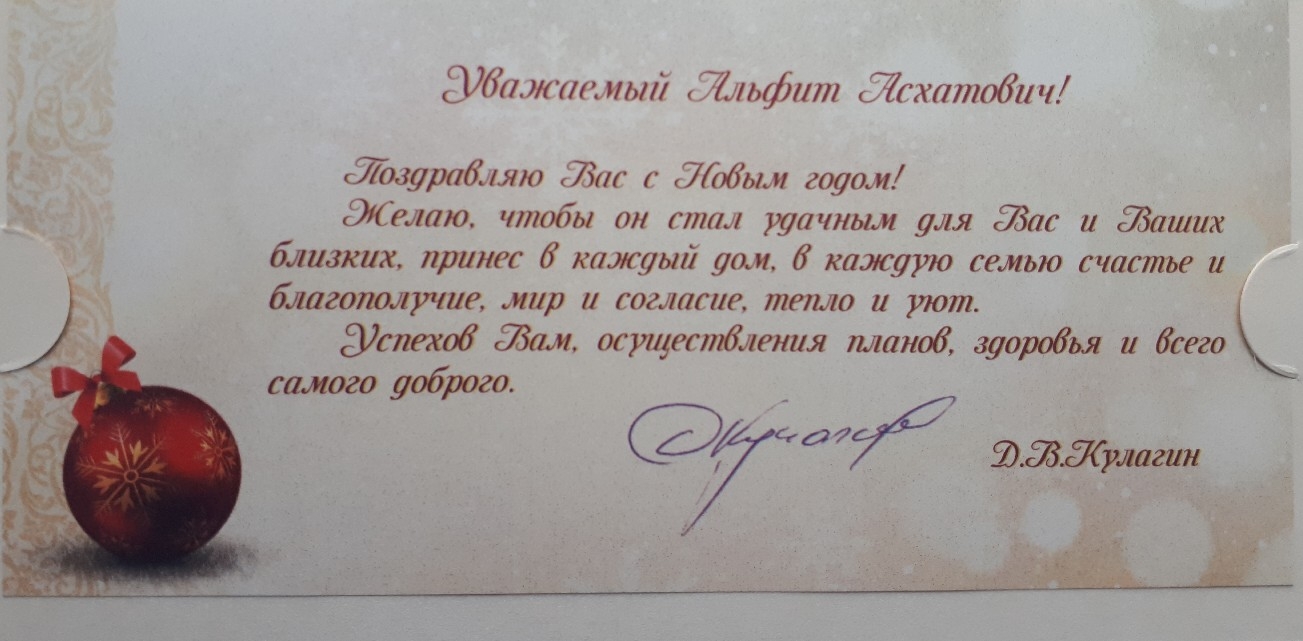 Уважаемый Альфит Асхатович!
Поздравляю Вас с Новым годом!
Желаю, чтобы он стал удачным для Вас и Ваших
близких, принес в каждый дом, в каждую семью счастье и
благополучие, мир и согласие, тепло и уют.
Успехов Вам, осуществления планов, здоровья и всего
самого доброго.
Д.В.Кулагин